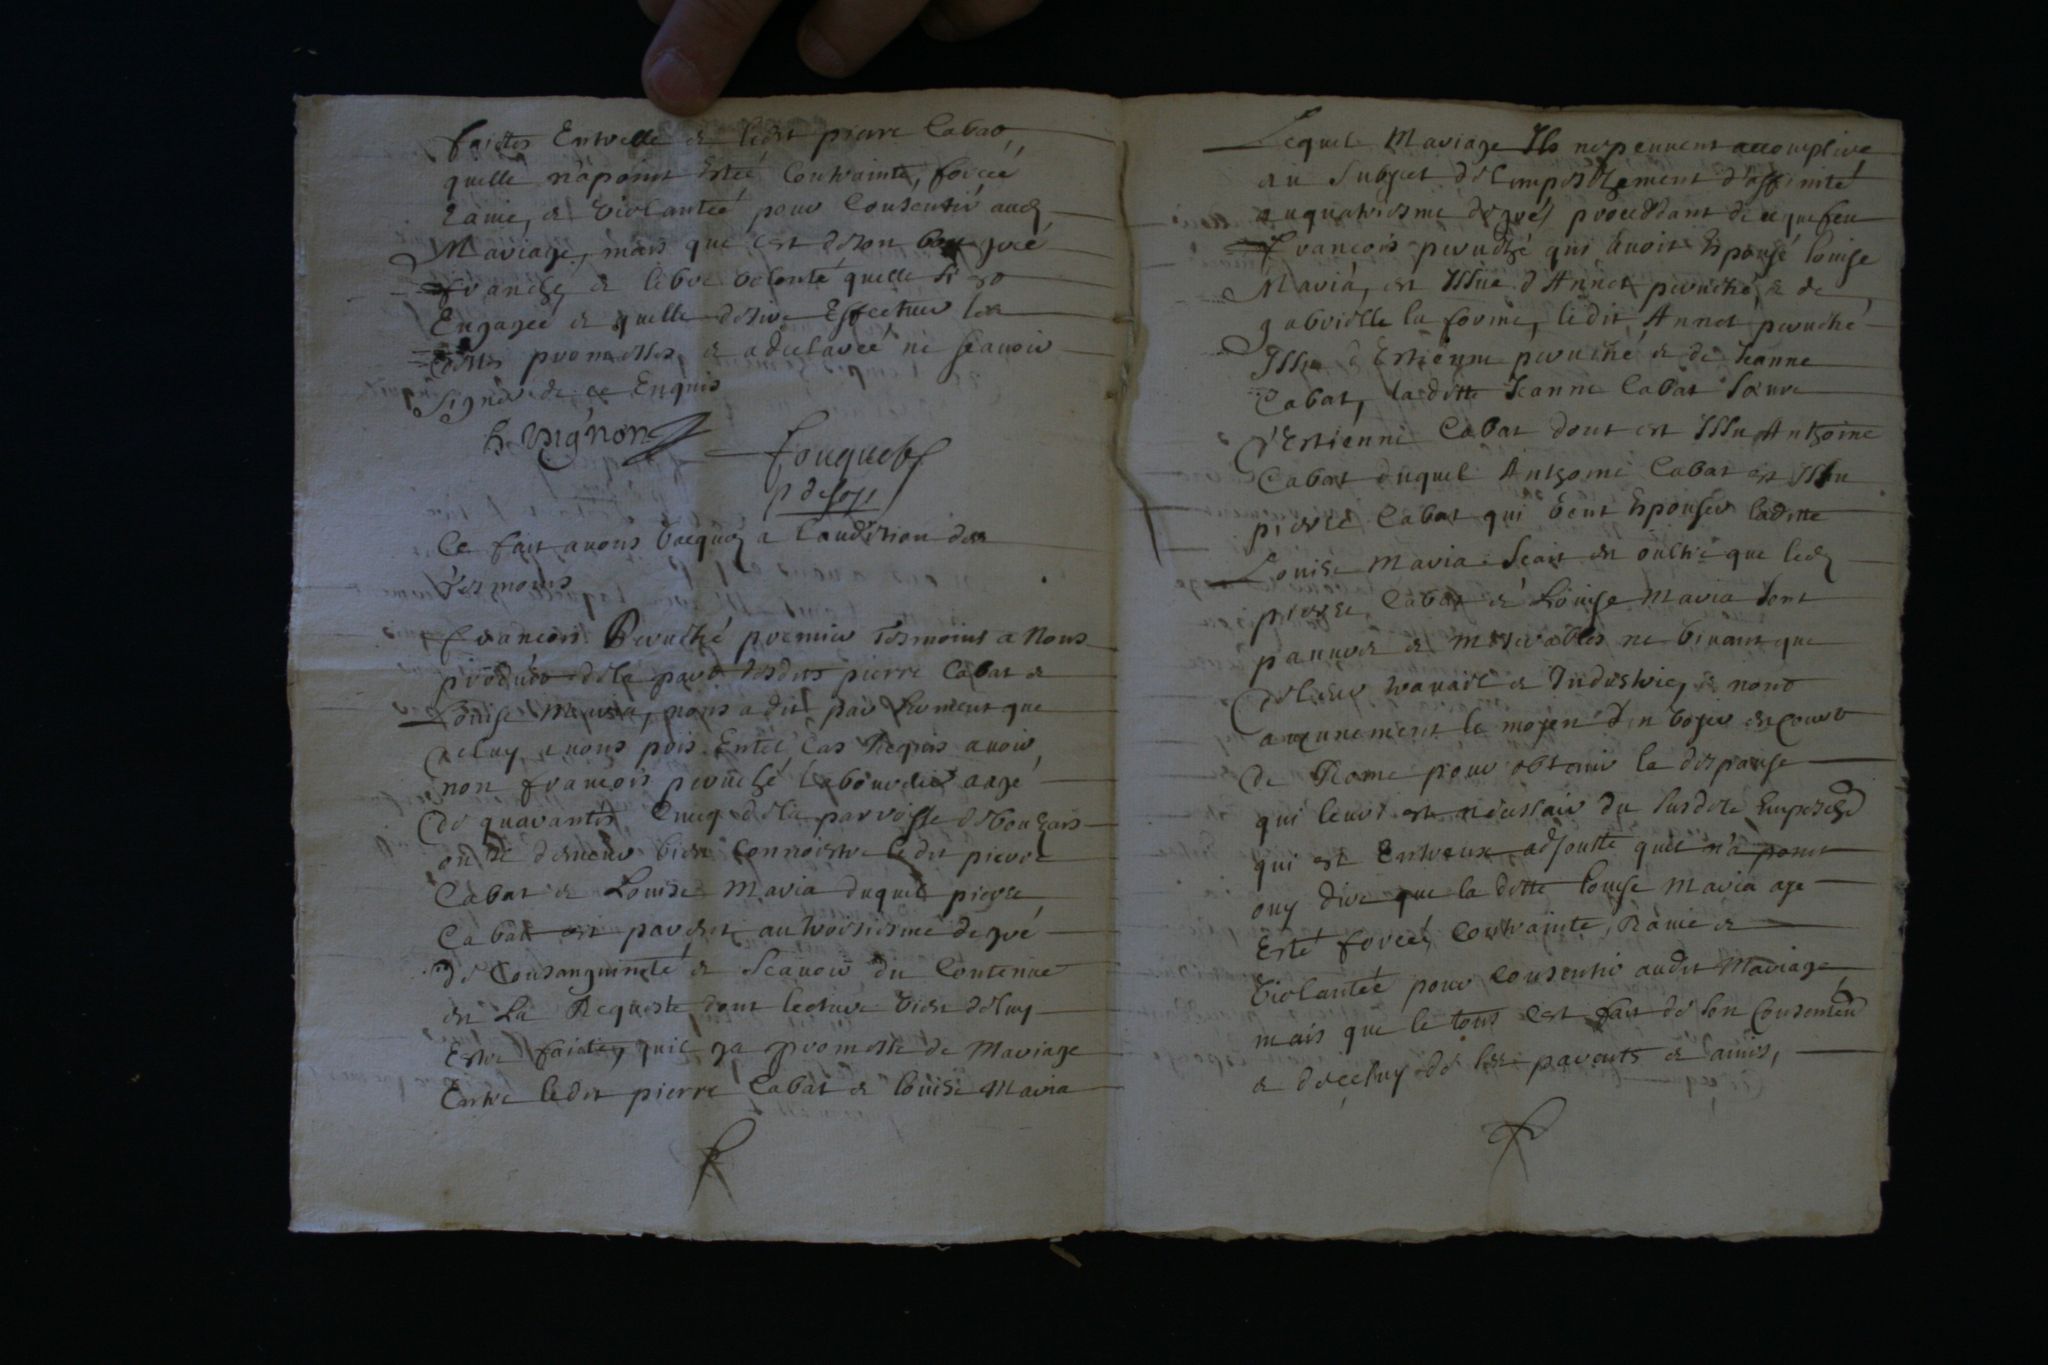 faictes Entrelle & ledit pierre Cabat
quelle n'apoint Estée Contrainte, forcée
ravie, & violantée pour Consentir aud
Mariage, mais que c'est de son bon gré
franche & libre volonté quelle si es
Engagée & quelle desire Effectuer les
dittes promesses, & a declareé ne scauoir
signer de ce Enquis
h. Vignon
fouquet
ce fait auons vacqué a l'audition des
tesmoins
francois Peruché premier Tesmoint a Nous
produict de la part desdits pierre Cabat &
Louise Mavia, nous a dit par serment que
de luy auons pris En tel Cas Requis auoir
nom francois peruché laboureur aagé
de quarantes Cincq de la parroisse de bouzais
ou il demeure bien Connoistre ledit pierre
Cabat & Louise Mavia duquel pierre
Cabat est parent au troisiesme degré
de Consanguinité & scauoir du Contenue
en La Requeste dont lecture vient de luy
Estre faicte, quil ya promesse de Mariage
Entre ledit pierre Cabat & louise Mavia
Lequel Mariage Ils ne peuuent accomplire
au subject de l'empeschement d'affinité
au quatriesme degrés proceddant de ce que feu
francois peruché qui auoit Espousé louise
Mavia, est Issue d'Annet peruché, & de
gabrielle la forme, ledit Annet peruché
Issu d'Estienne peruché & de Jeanne
Cabat, la ditte Jeanne Cabat sœure
d'Estienne Cabat dont est Issu Anthoine
Cabat duquel Anthoine Cabat est Issu
pierre Cabat qui veut Espouser laditte
Louise Mavia. Scait en oultre que led
pierre Cabat & Louise Mavia sont
pauures & miserables ne viuant que
de leur trauail & Industrie, & nont
aucunement le moyen d'en voyer en Court
de Rome pour obtenir la dispanse
qui leurs est necessair du susdit Empesché
qui est Entreux adjoutte quil n'a point
ouy dire que la ditte louise Mavia aye
Esté forcée, Contrainte, Ravie &
violantée pour Consentir audit Mariage
mais que le tous c'est fait de son Consentem
& de celuy de ses parents & amis,